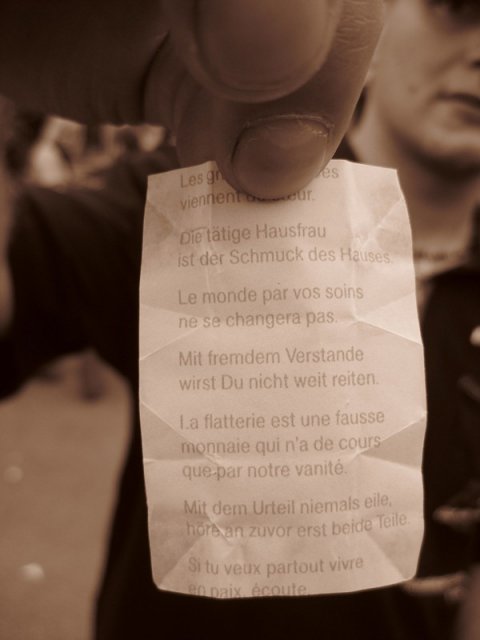 Les gr es
viennent du cœur.
Die tätige Hausfrau
ist der Schmuck des Hauses.
Le monde par vos soins
ne se changera pas.
Mit fremdem Verstande
wirst Du nicht weit reiten.
La flatterie est une fausse
monnaie qui n'a de cours
que par notre vanité.
Mit dem Urteil niemals eile,
höre an zuvor erst beide Teile.
Si tu veux partout vivre
en paix, écoute,